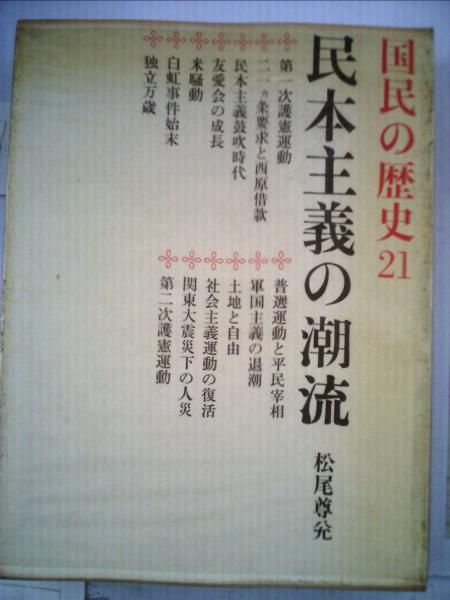 国民の歴史21
民本主義の潮流
松尾尊兊
第一次護憲運動
二一カ条要求と西原借款
民本主義鼓吹時代
友愛会の成長
米騒動
白虹事件始末
独立万歳
普選運動と平民宰相
軍国主義の退潮
土地と自由
社会主義運動の復活
関東大震災下の人災
第二次護憲運動